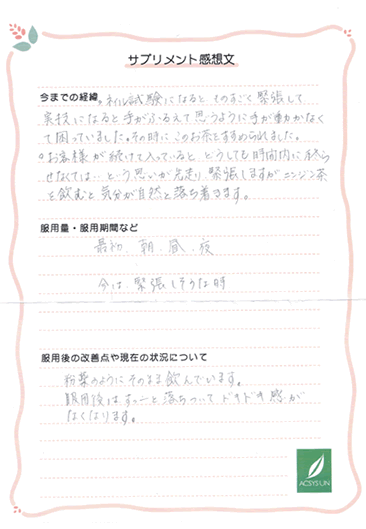 サプリメント感想文
今までの経緯。ネイル試験になると、ものすごく緊張して
実技になると手がふるえて思うように手が動かなく
て困っていました。その時にこのお茶をすすめられました。
。お客様が続けて入っていると、どうしても時間内に終ら
せなくては…という思いが先走り緊張しますがニンジン茶
を飲むと気分が自然と落ち着きます。
服用量・服用期間など
最初、朝、昼、夜
今は、緊張しそうな時
服用後の改善点や現在の状況について
粉薬のようにそのまま飲んでいます。
服用後はすーっと落ちついてドキドキ感が
なくなります。
ACSYSUN